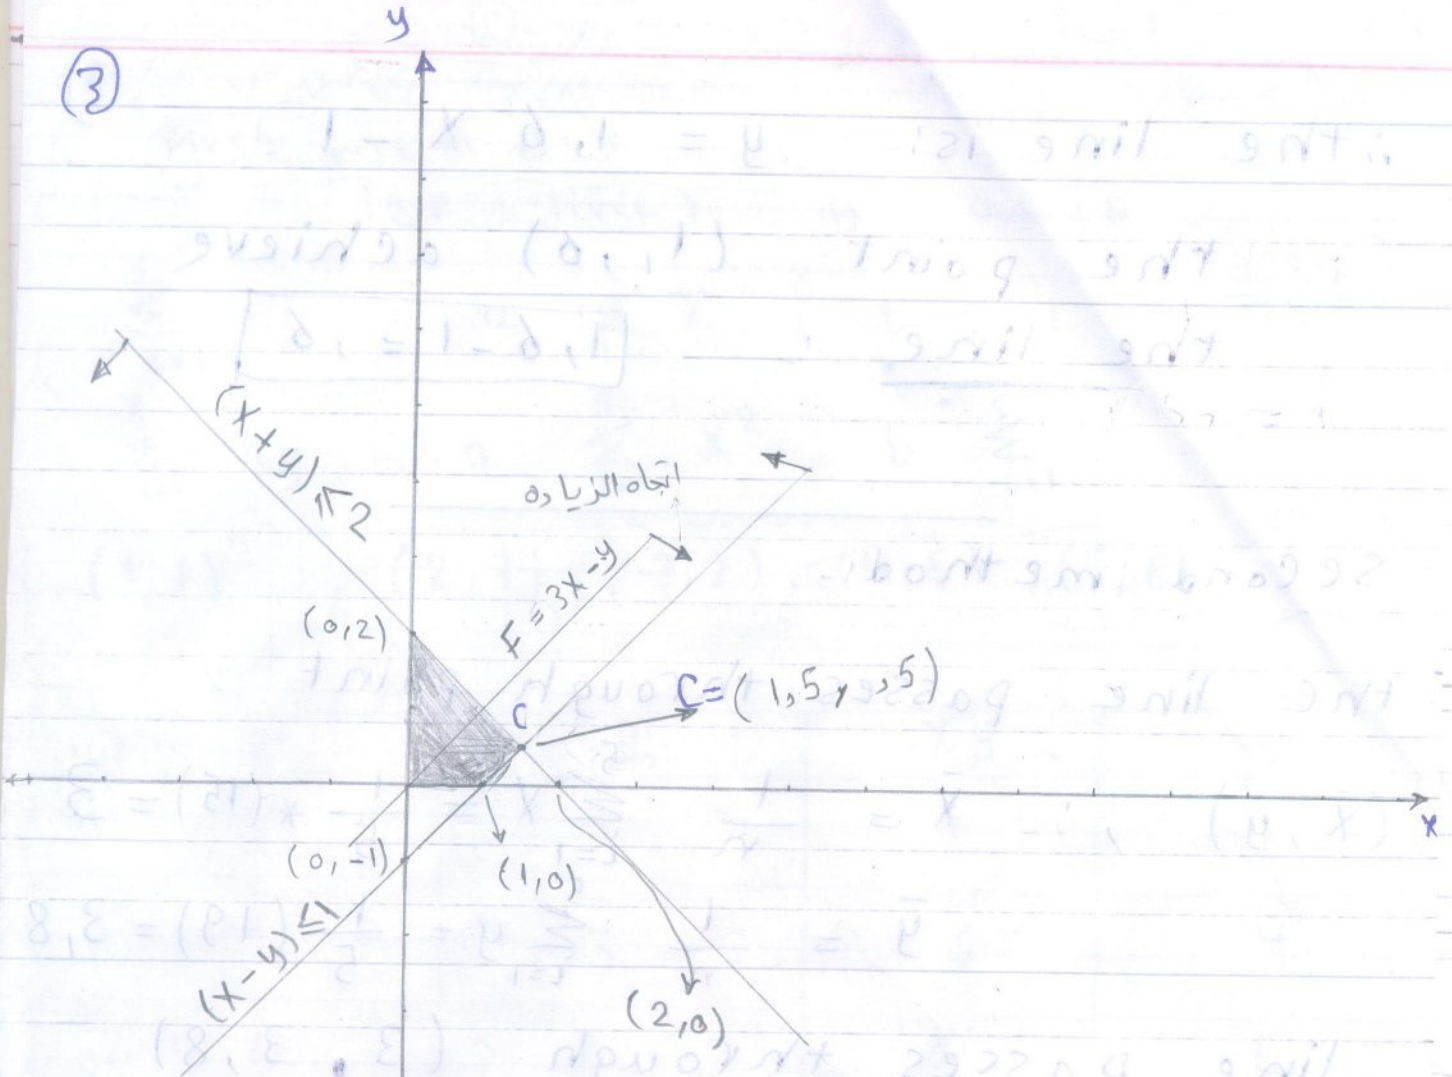 y
3
(x+y) ≤ 2
اتجاه الزياده
F = 3x-y
(0,2)
C
C=(1,5, ,5)
x
(0,-1)
(1,0)
(x-y) ≤ 1
(2,0)